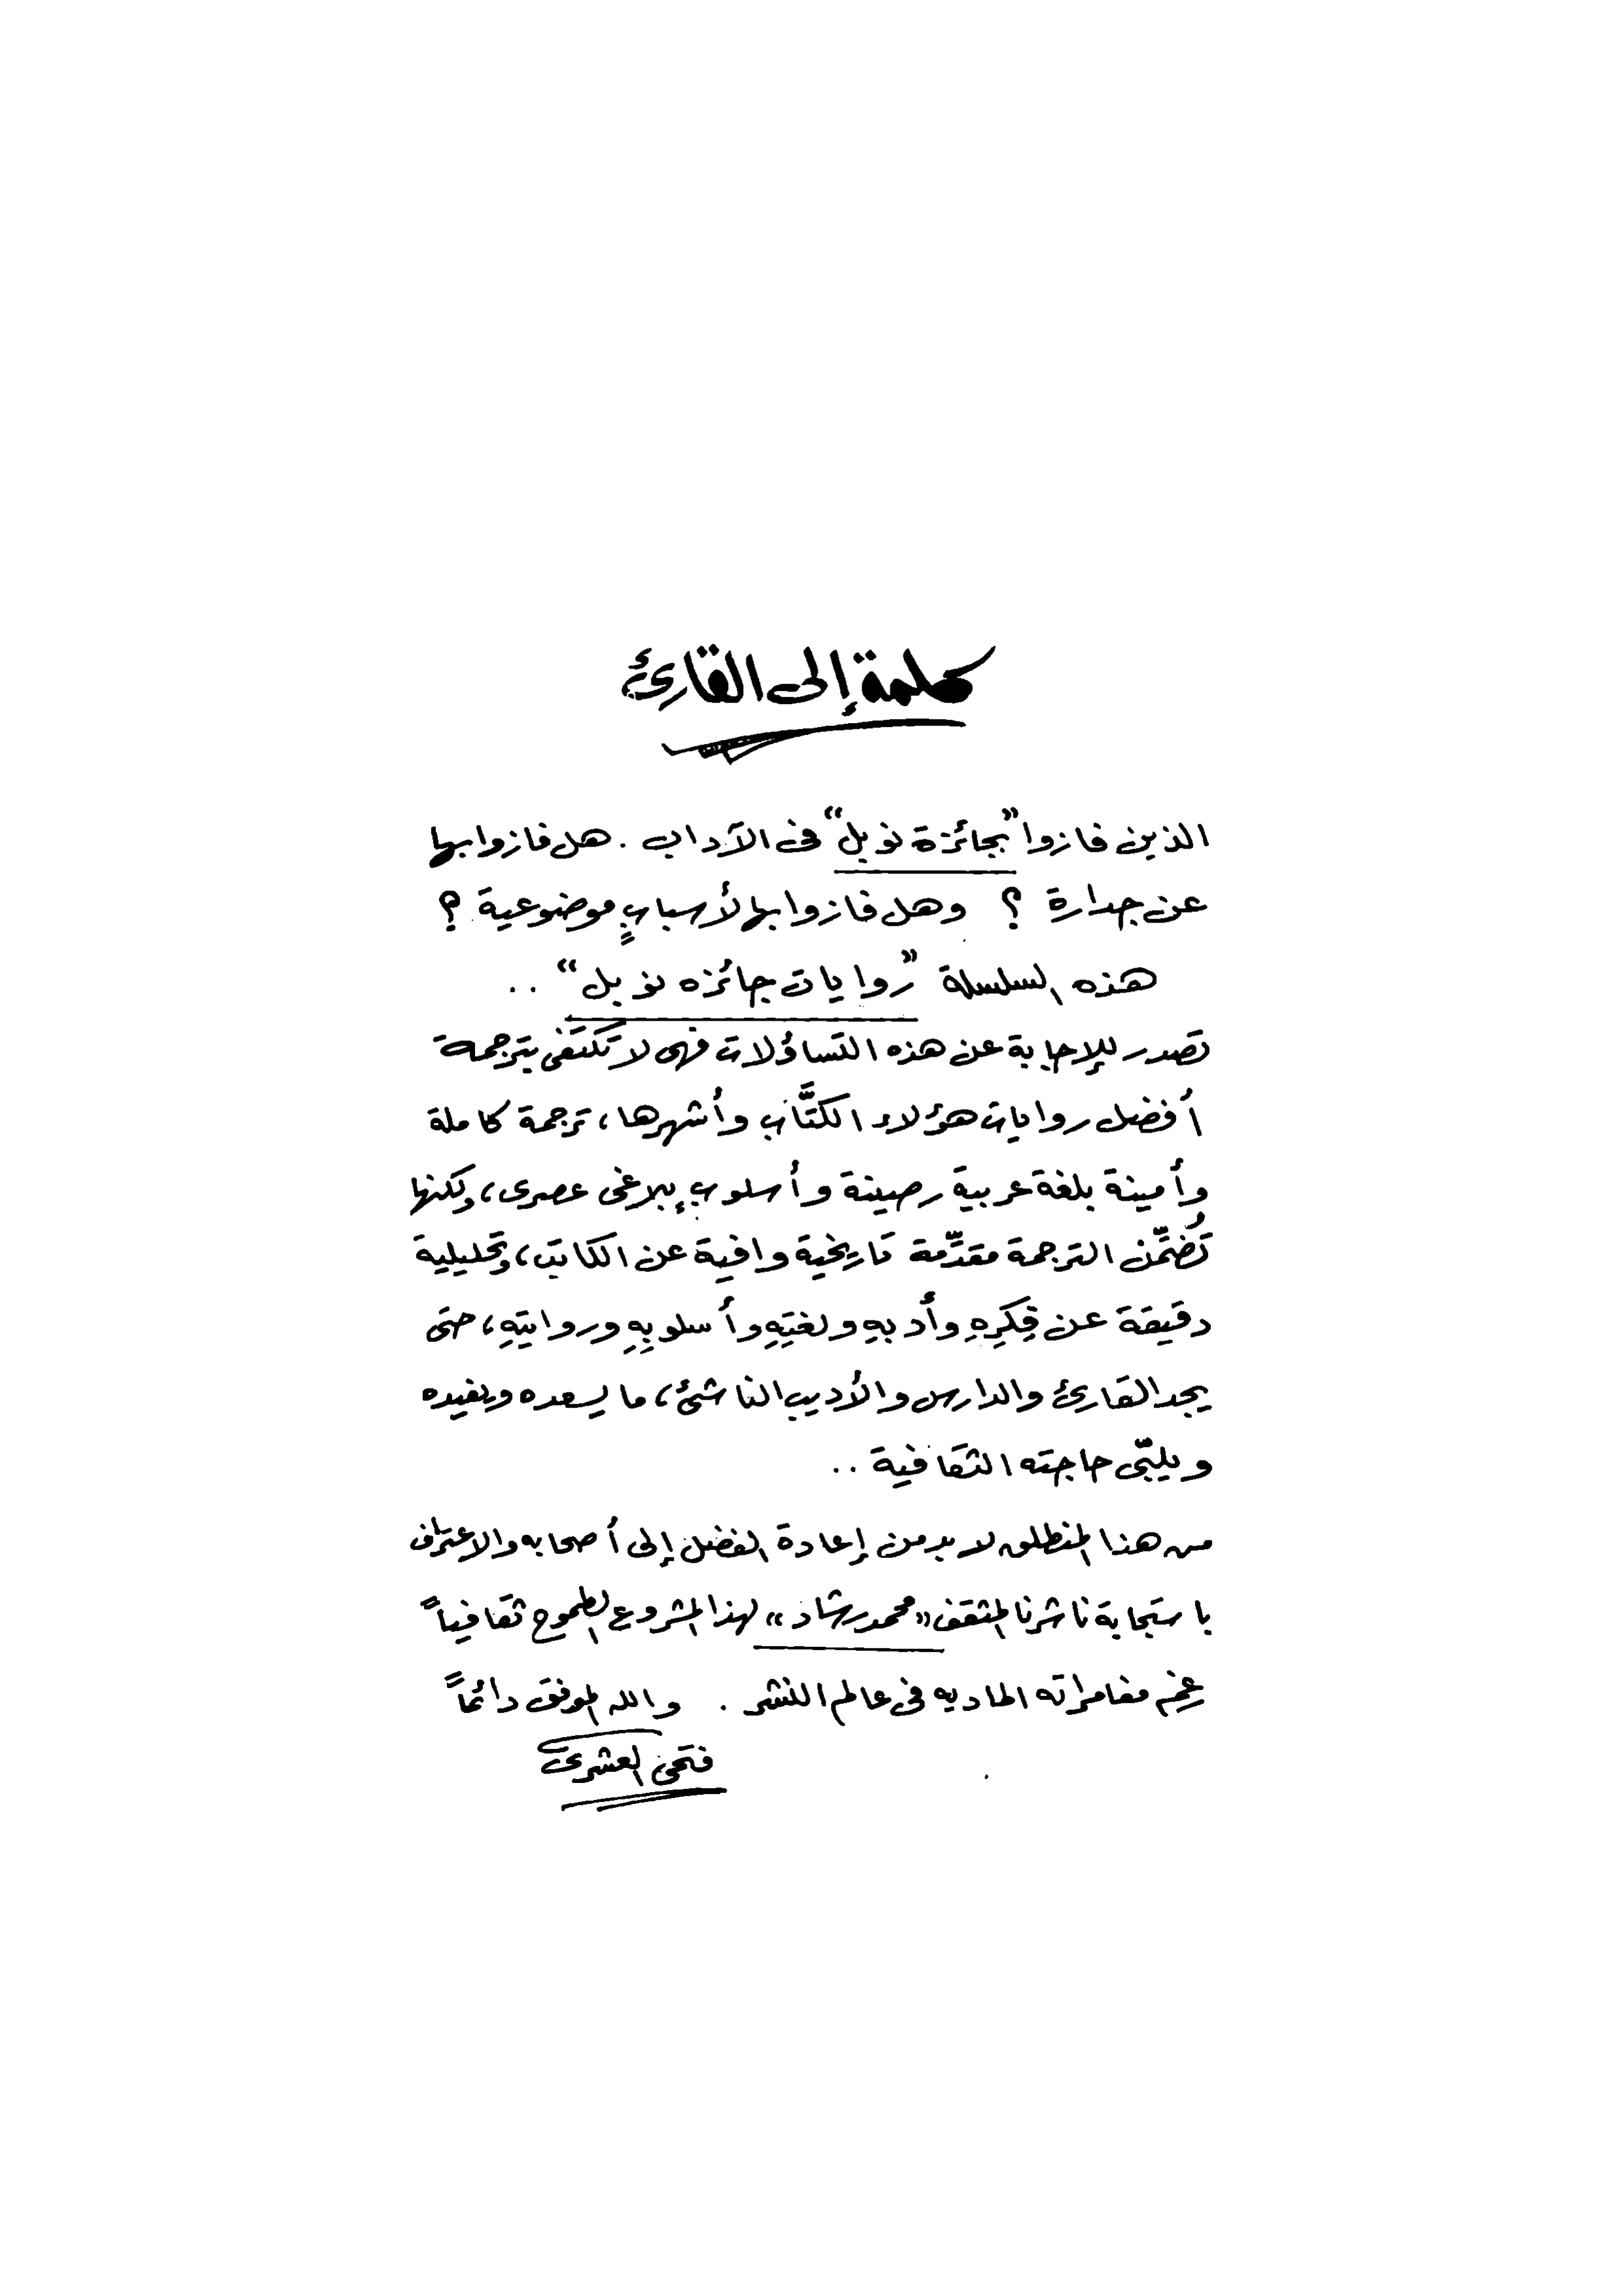 كلمة إلى القارئ
الذين فازوا "بجائزة نوبل" فى الآداب . هل فازوا بها
عن جدارة ؟ وهل فازوا بها لأسبابٍ موضوعية ؟
هذه السلسلة "روايات جائزه نوبل" ..
تصدر للإجابة عن هذه التساؤلات فهى لا تكتفى بترجمة
أفضل روايات هؤلاء الكتَّاب وأشهرها، ترجمة كاملة
وأمينة بلغة عربية رصينة وأسلوب إبلاغى عصرى، ولكنها
تُضمِّن الترجمة مقدِّمة تاريخية وافية عن الكاتب، وتحليلية
دقيقة عن فِكِرِهِ وأدبهِ ولغتِهِ وأسلوبِهِ وروايتِهِ، حتى
يجد القارئ والدارس والأديب الناشئ، ما يسعده ويفيده
ويلبّى حاجته الثقافية ..
من هذا المنطلق لا بد من إعادة الفضل إلى أصحابه والاعتراف
باستجابة ناشرنا المثقف «محمد رشاد» لهذا المشروع الطموح ثقافياً
رغم مغامراته الماديه فى عالم النشر . والله الموفق دائماً
فتحى العشرى